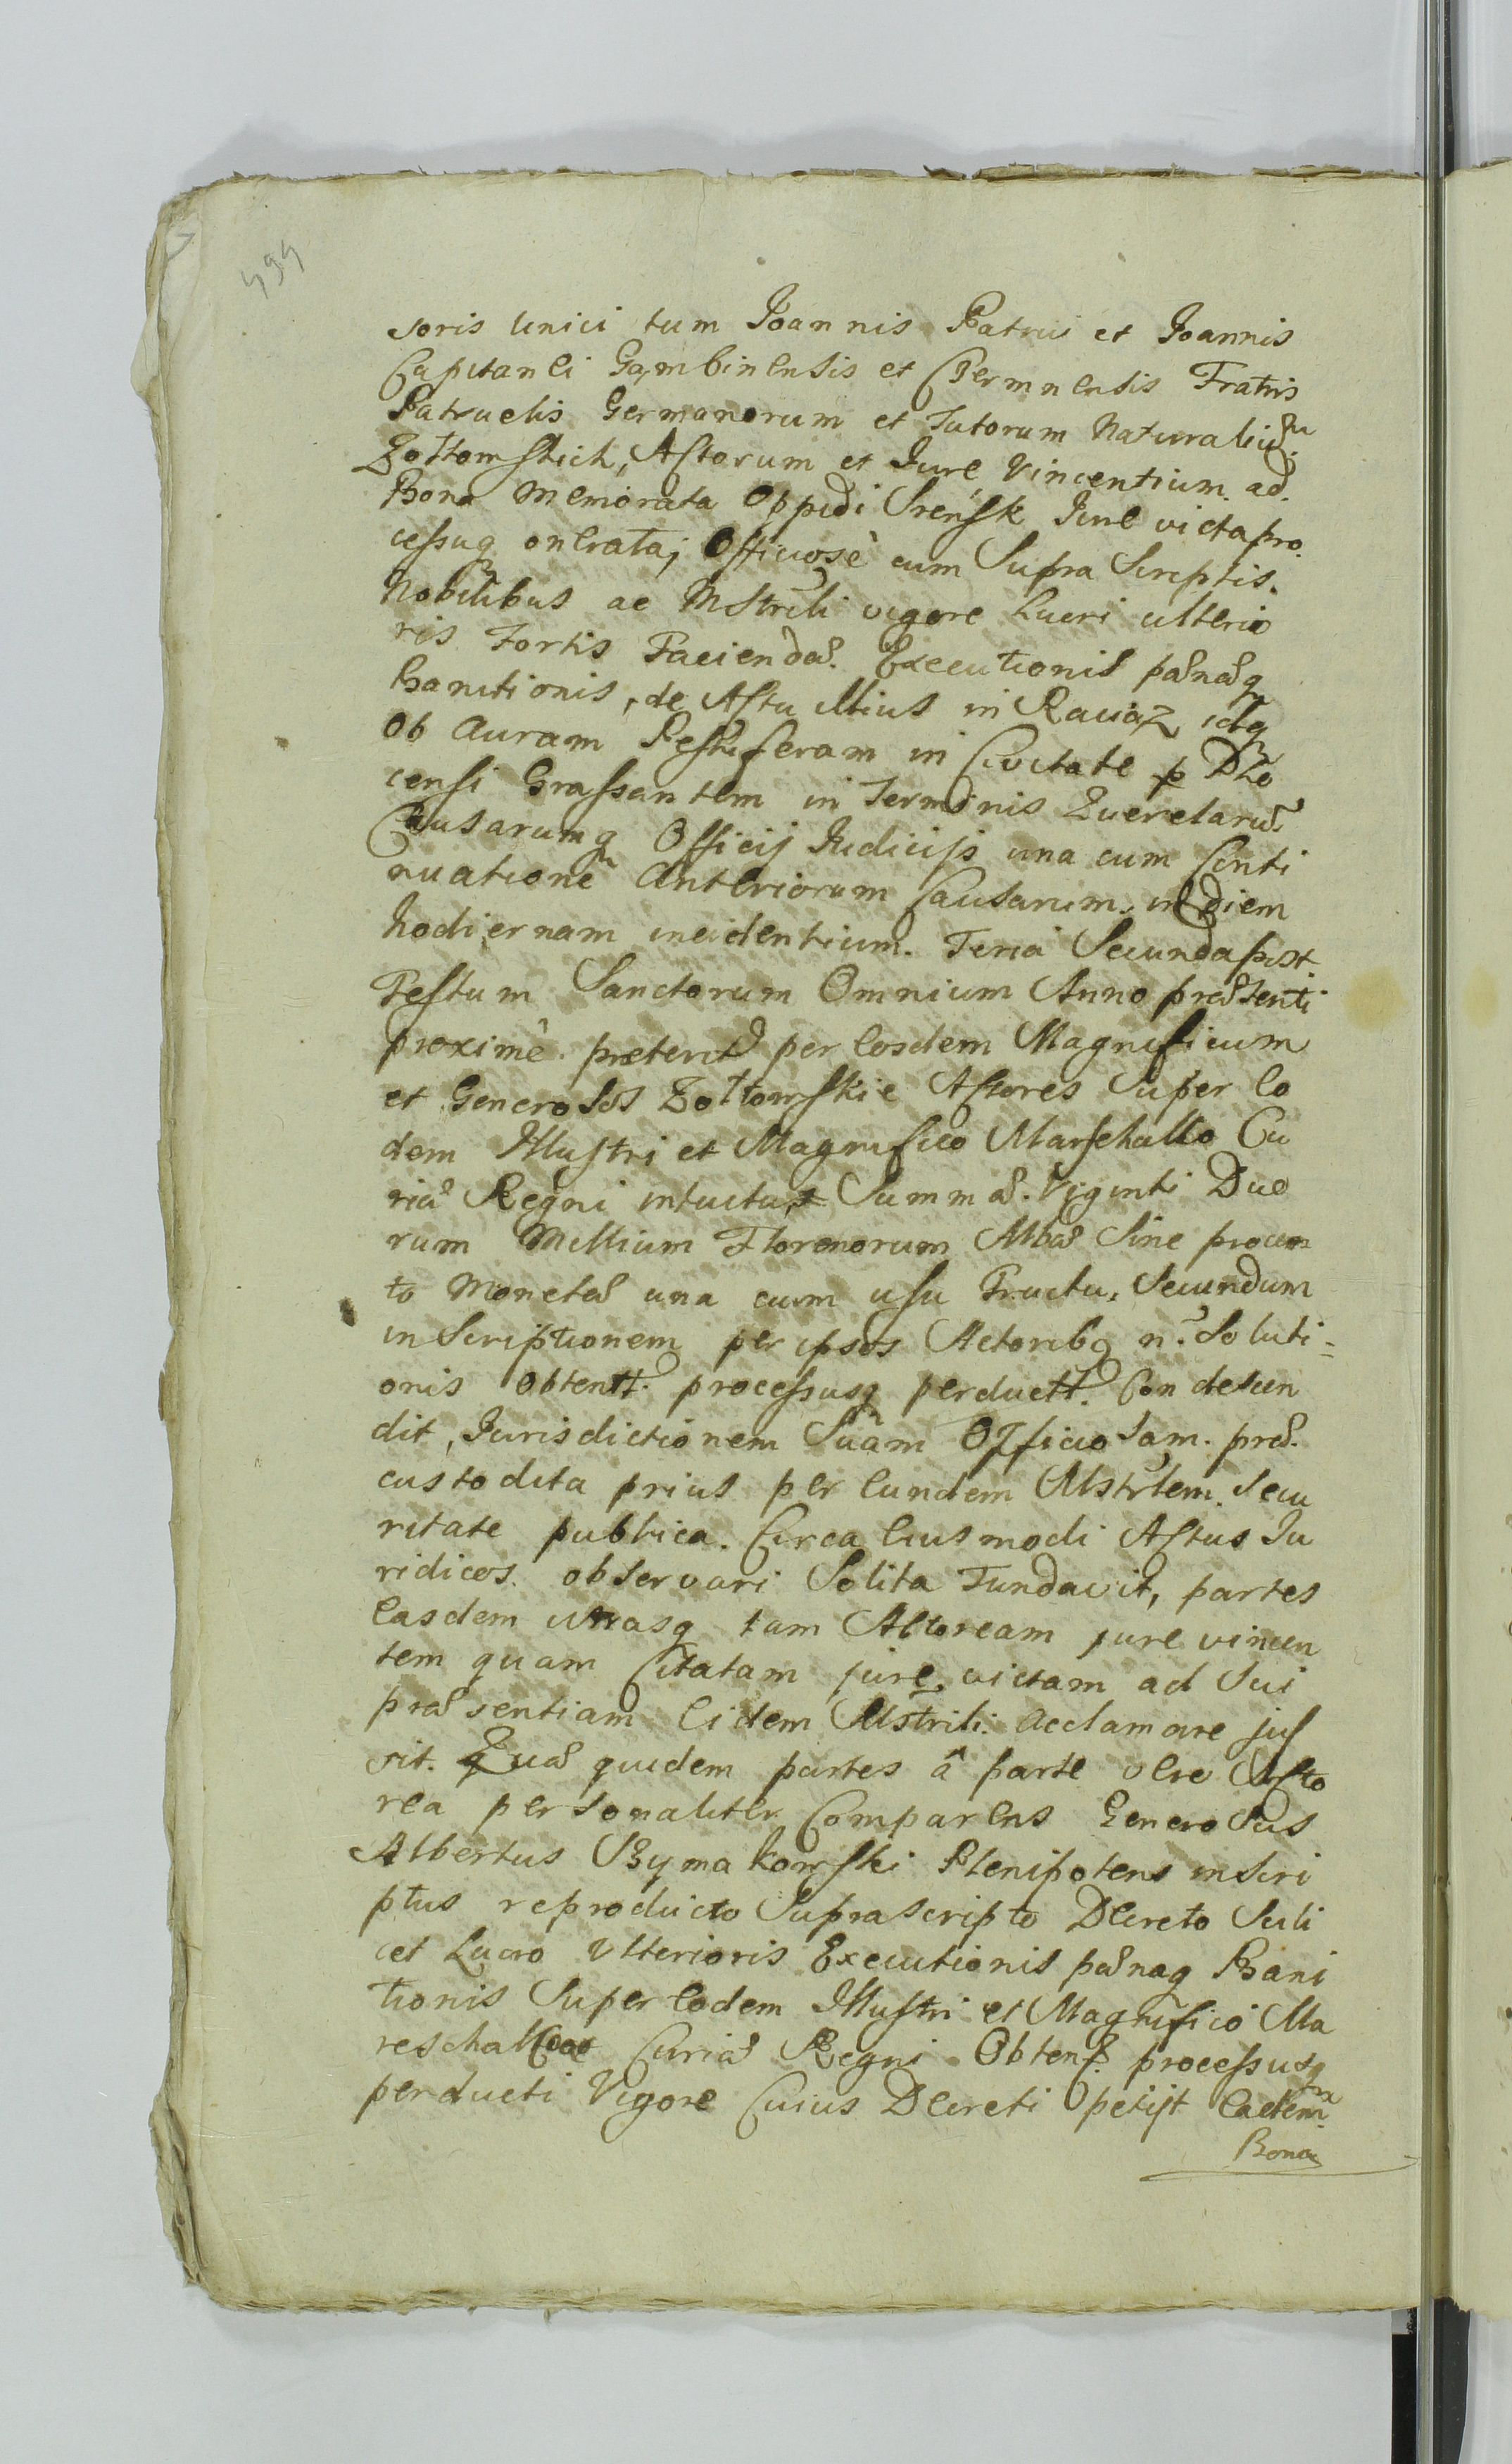 499
soris Unici tum Joannis Patrui et Joannis
Capitanei Gąmbinensis et Czermnensis Fratris
Patruelis Germanorum et Tutorum Naturaliũ.
Zołtowskich, Actorum et Jure Vincentium. ad.
Bona Memorata Oppidi Sreńsk Jure victa pro.
cessuq onerata; Officiosè cum Supra Scriptis.
Nobilibus ac Mstrili vigore Lucri ulterio
ris Fortis Faciendæ. Executionis pænæq
banitionis, de Actu illius in Raciąz idq
Ob Auram Pestiferam in Civitate p Plo
censi Grassantem in Terminis Querelarũ
Causarumq Officij Judicijs una cum Conti
nuationẽ Anteriorum Causarum. in diem
hodiernam incidentium. Feria Secunda post
Festum Sanctorum Omnium Anno præsenti
proximè. preterit per eosdem Magnificum
et Generosos Zołtowskie Actores Super eo
dem Illustri et Magnifico Marschallo Cu
riæ Regni intuitu Summæ. Viginti Duo
rum Millium Florenorum Albæ Sine procen
to Monetæ una cum usu Fructu, Secundum
inScriptionem per ipsos Actoribq n. Soluti=
onis obtentt. processusq perductt. Condescen
dit, Jurisdictionem Suam Officiosam. præ.
custodita prius per eundem Mstrlem. Secu
ritate publica. Circa eiusmodi Actus Ju
ridicos. observari Solita Fundavit, partes
easdem utrasq tam Actoream jure vincen
tem quam Citatam jure victam ad Sui
præsentiam eidem Mstrili. acclamare jus
sit. Quæ quidem partes â parte vere Acto
rea personaliter Comparens Generosus
Albertus Szymakowski Plenipotens inscri
ptus reproducto Suprascripto Decreto Scili
cet Lucro Ulterioris Executionis pænaq Bani
tionis Super eodem Illustri et Magnifico Ma
reschallo Curiæ Regni Obtent. processusq
perducti Vigore Cuius Decreti petijt eadem
Bona